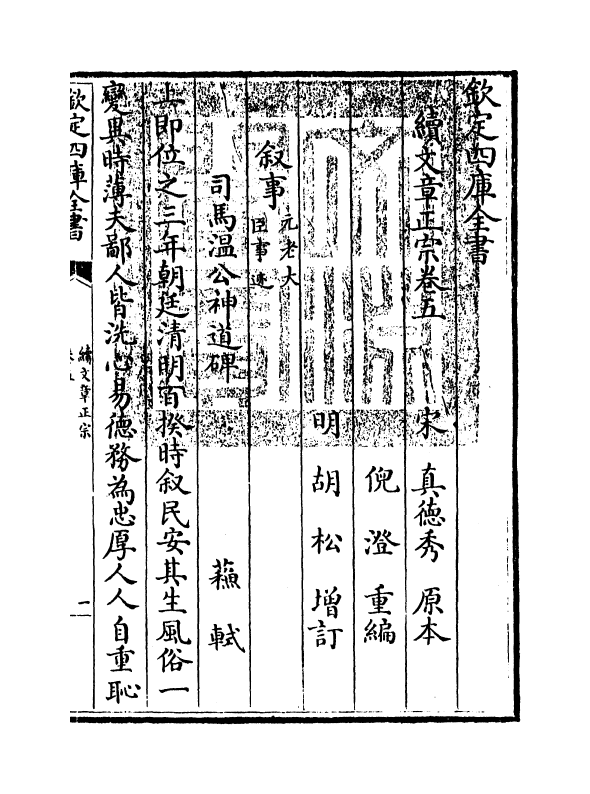 欽定四庫全書
續文章正宗卷五
宋 真德秀 原本
倪澄 重編
明 胡松 增訂
叙事元老大臣事迹
司馬温公神道碑 蘓軾
上即位之三年朝廷清明百揆時叙民安其生風俗一
變異時薄夫鄙人皆洗心易德務為忠厚人人自重恥
欽定四庫全書
續文章正宗
卷五
一